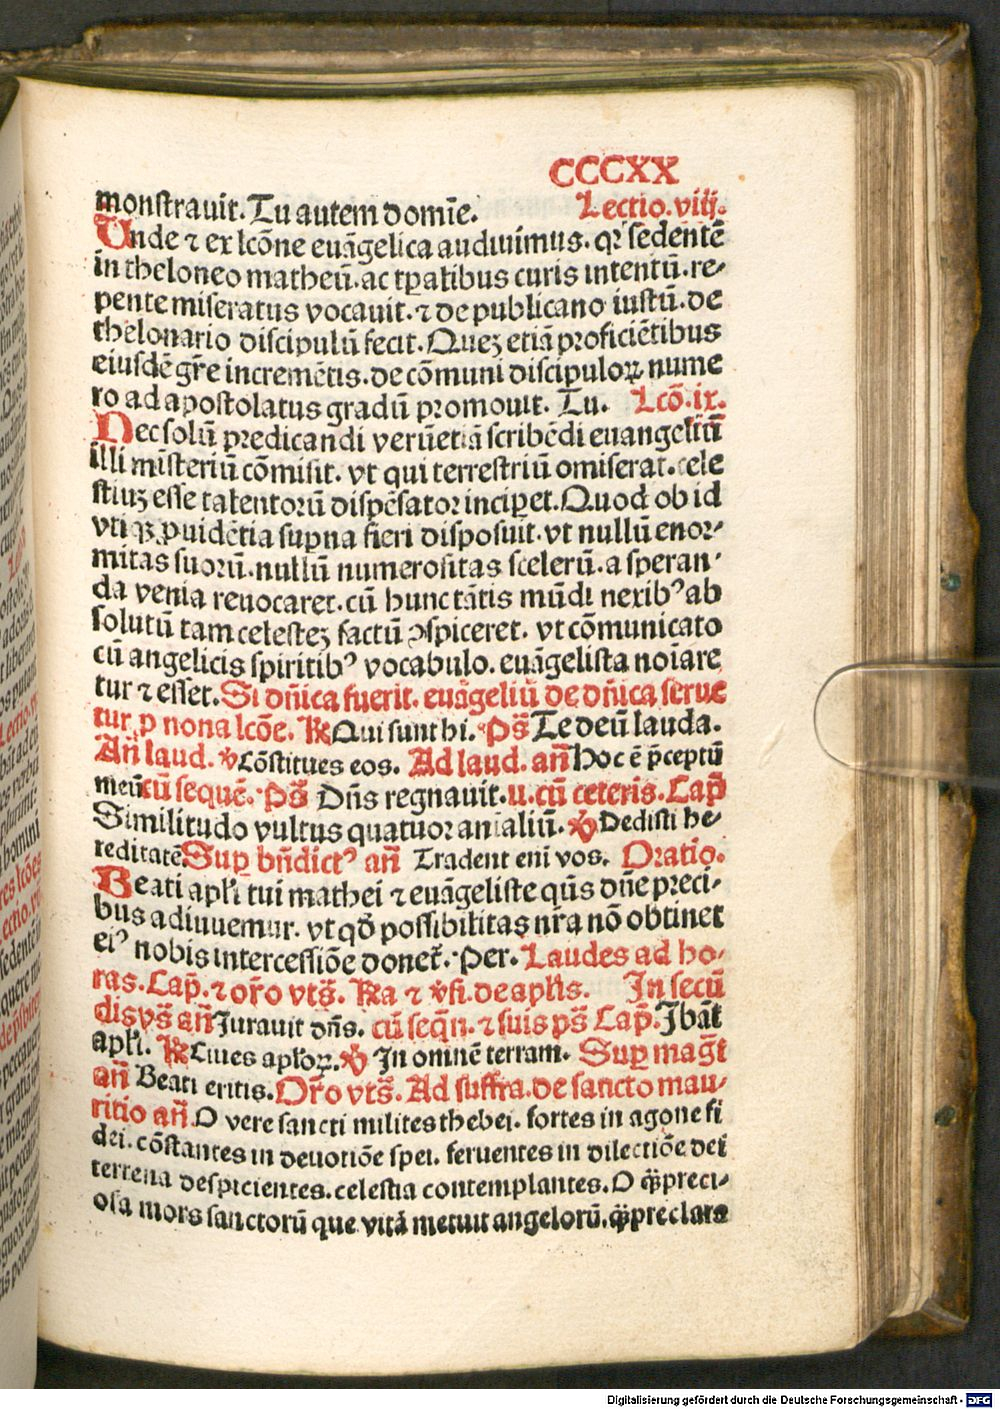 CCCXX
monstrauit. Tu autem domīe. Lectio. viij.
Unde ⁊ ex lcōne euāgelica audiuimus. qꝛ sedentē
in theloneo matheū. ac tꝑalibus curis intentū. re-
pente miseratus vocauit. ⁊ de publicano iustū. de
thelonario discipulū fecit. Quez etiā proficiētibus
eiusdē gr̄e incremētis. de cōmuni discipuloꝝ nume
ro ad apostolatus gradū promouit. Tu. Lcō. ix.
Nec solū predicandi verūetiā scribēdi euangeliū
illi misteriū cōmisit. vt qui terrestriū omiserat. cele
stiuz esse talentorū dispēsator inciperet. Quod ob id
vtiqꝫ ꝓuidētia supna fieri disposuit. vt nullū enor-
mitas suorū. nullū numerositas scelerū. a speran-
da venia reuocaret. cū hunc tātis mūdi nexibꝰ ab
solutū tam celestez factū ꝯspiceret. vt cōmunicato
cū angelicis spiritibꝰ vocabulo. euāgelista noīare
tur ⁊ esset. Si dn̄ica fuerit. euāgeliū de dn̄ica serue
tur ꝓ nona lcōe. ℟ Qui sunt hi. Ps̄ Te deū lauda.
An̄ laud. ℣ Cōstitues eos. Ad laud. an̄ Hoc ē p̄ceptū
meū cū sequē. Ps̄ Dn̄s regnauit. u. cū ceteris. Cap̄
Similitudo vultus quatuor anialiū. ℣ Dedisti he-
reditatē. Suꝑ bn̄dictꝰ an̄ Tradent eni vos. Oratio.
Beati apl̄i tui mathei ⁊ euāgeliste qūs dn̄e preci-
bus adiuuemur. vt qd̄ possibilitas nr̄a nō obtinet
eiꝰ nobis intercessiōe donet̄. Per. Laudes ad ho-
ras. Cap̄. ⁊ or̄o vts̄. ℟a ⁊ ℣si. de apl̄is. In secū
dis vs̄ an̄ Jurauit dn̄s. cū seq̄n. ⁊ suis ps̄ Cap̄. Jbāt
apl̄i. ℟ Ciues apl̄oꝝ. ℣ In omnē terram. Suꝑ maḡt
an̄ Beati eritis. Or̄o vts̄. Ad suffra. de sancto mau-
ritio an̄. O vere sancti milites thebei. fortes in agone fi
dei. cōstantes in deuotiōe spei. feruentes in dilectiōe dei
terrena despicientes. celestia contemplantes. O q̄ꝫ preci-
osa mors sanctorū que vitā metuit angelorū. q̄ꝫ preclara
Digitalisierung gefördert durch die Deutsche Forschungsgemeinschaft - DFG